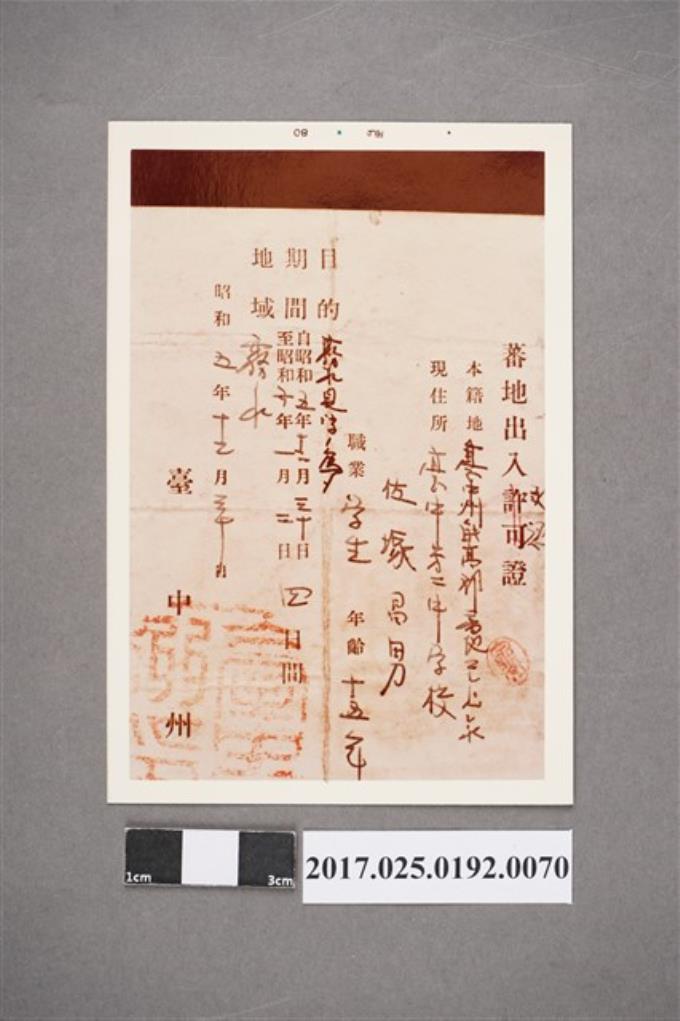 蕃地出入許可證
本籍地 臺中州能高郡蕃地
現住所 臺中第二中學校
佐塚昌男
職業 學生 年齡 十五年
目的 霧社見學ノ為
期間 自昭和五年十二月三十日
至昭和六年一月二日 四日間
地域 霧社
昭和五年十二月三十日
臺中州
1cm
3cm
2017.025.0192.0070